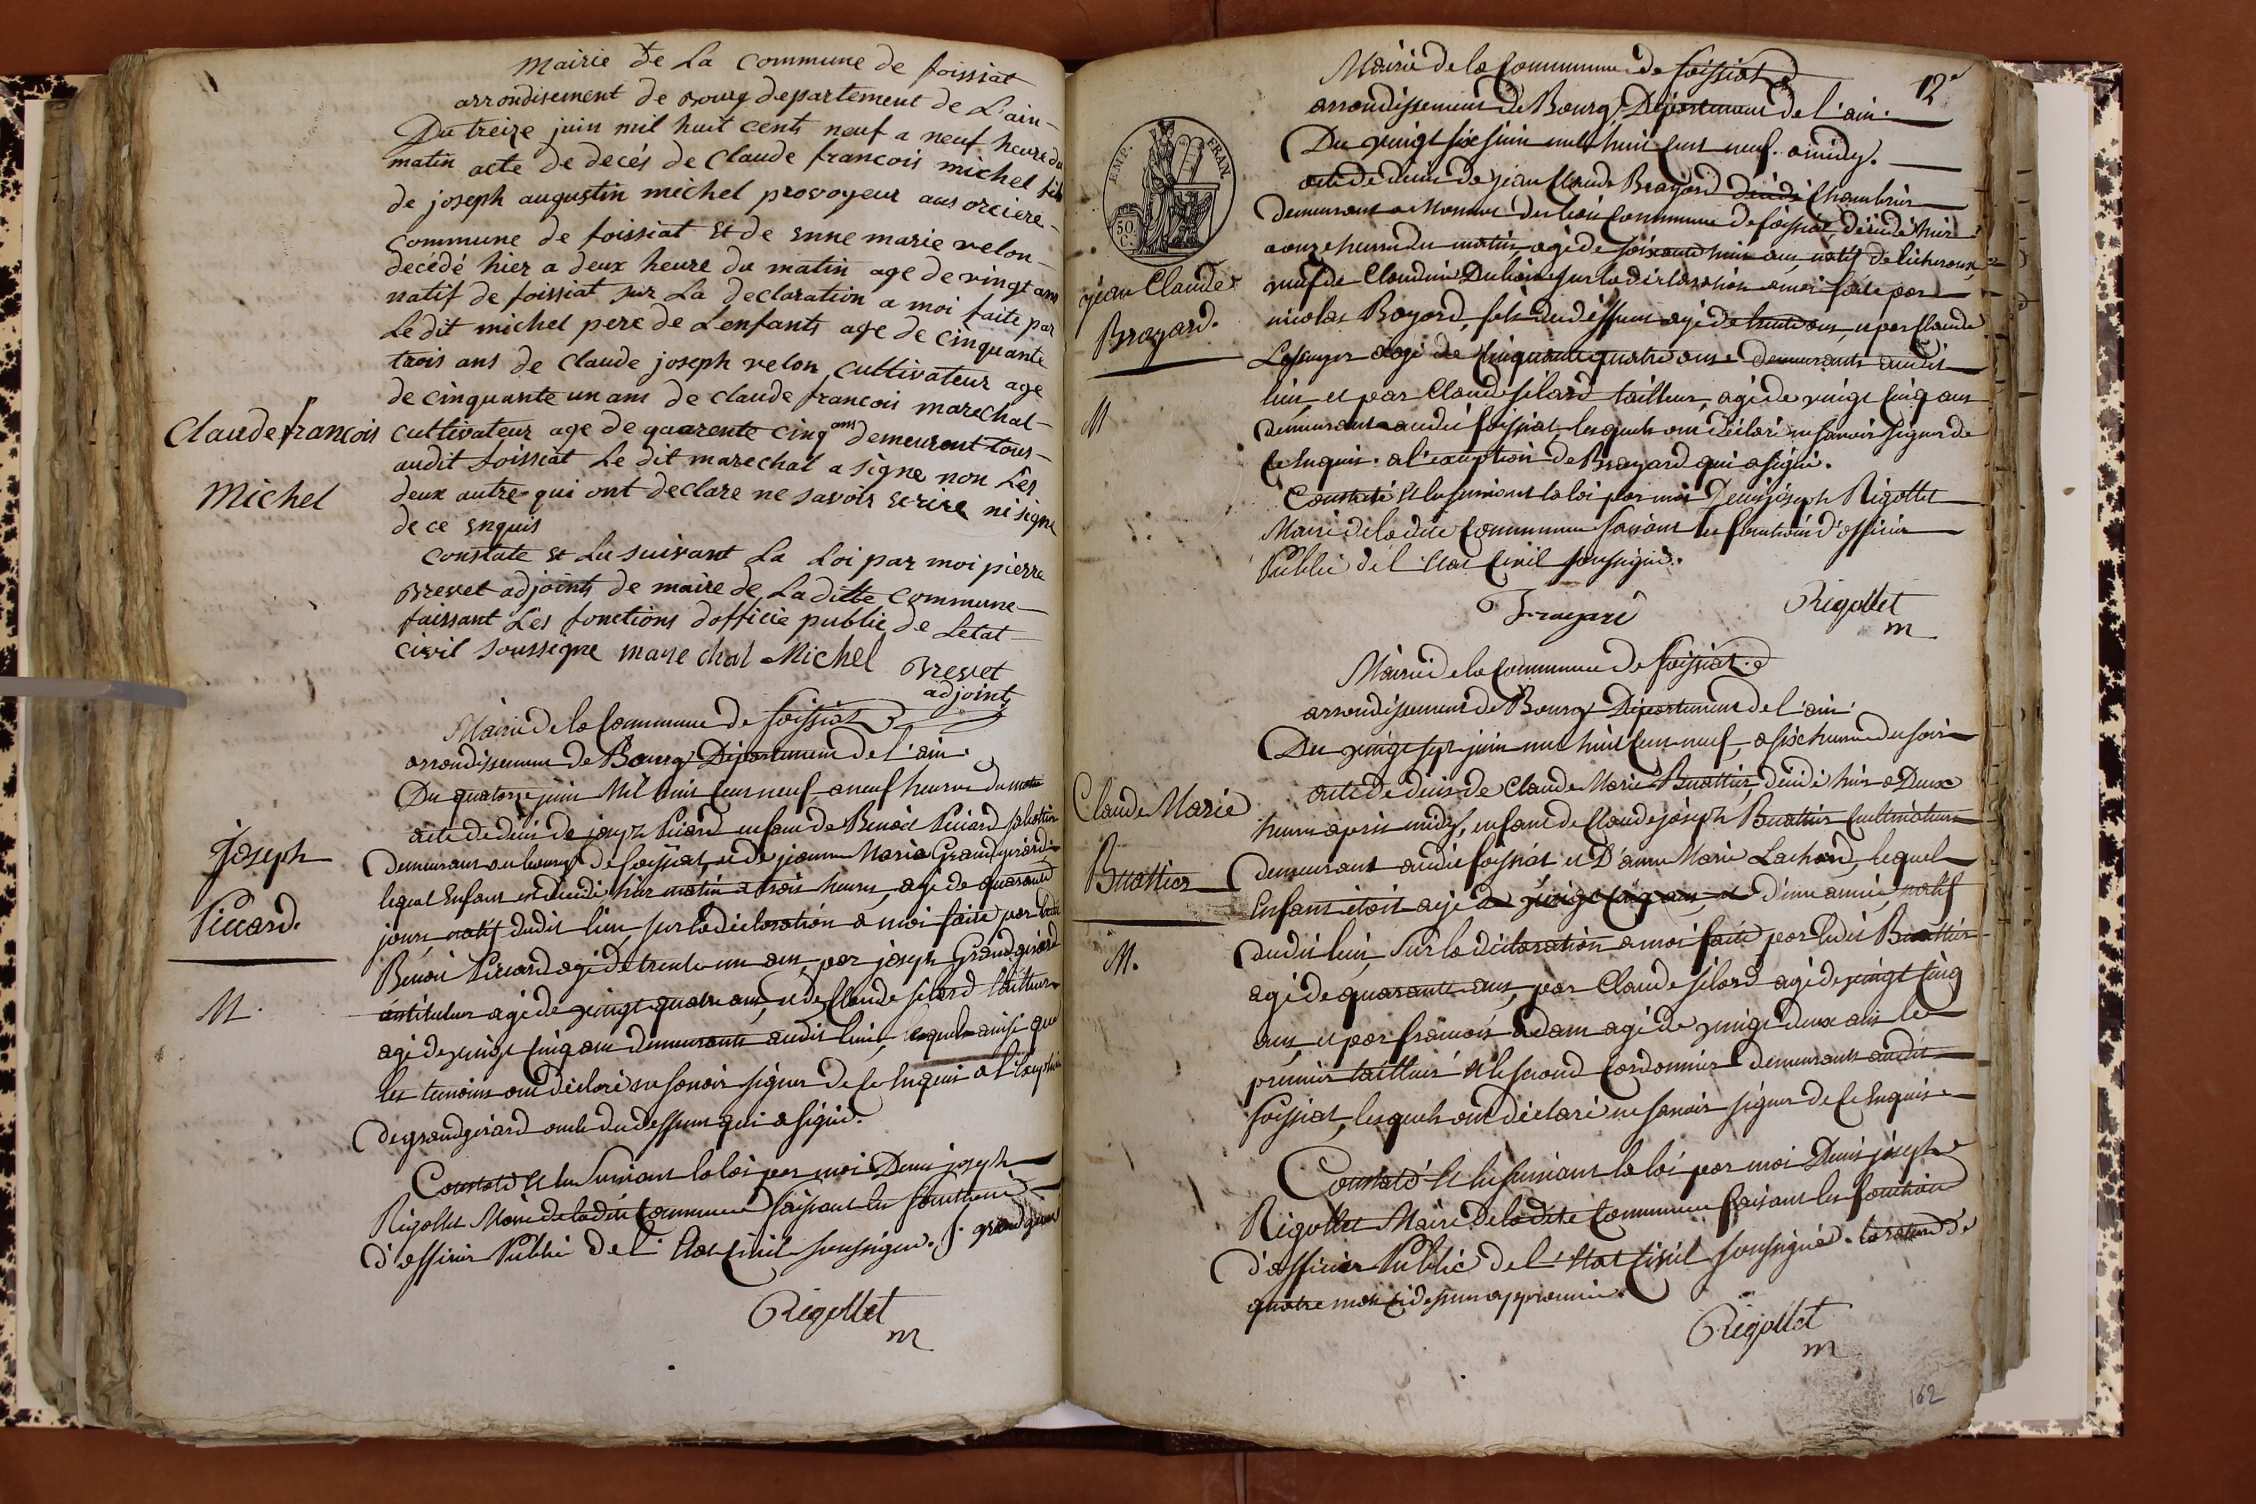 mairie de La commune de foissiat
arrondisement de Bourg departement de L'ain
Du treize juin mil huit cents neuf a neuf heure du
matin acte de decés de Claude francois michel fils
de joseph augustin michel provoyeur aus orciere
commune de foissiat et de enne marie velon
decédé hier a deux heure du matin age de vingt ans
natif de foissiat sur La declaration a moi faite par
Le dit michel pere de Lenfants age de cinquante
trois ans de claude joseph velon cultivateur age
de cinquante un ans de claude francois marechal
Claude francois
Michel
cultivateur age de quarente cinq ans demeurant tous
audit foissiat Le dit marechal a signe non Les
deux autre qui ont declare ne savoir ecrire ni signe
de ce enquis
constate et Lu suivant La Loi par moi pierre
Brevet adjoints de maire de Laditte commune
faissant Les fonctions dofficie public de Letat
civil soussigne marechal Michel
Brevet
adjoints
Mairie de la Commune de foissiat
arrondissement de Bourg Département de l'ain
Du quatorze juin Mil huit Cent neuf a neuf heures du matin
Joseph
Piccard.
M.
acte de décès de joseph Picard enfant de Benoit Piccard
demeurant au bourg de foissiat, et de jeanne Maria Grandgirard
lequel Enfant est décédé hier matin a trois heures, agé de quarante
jours natif dudit lieu, sur la déclaration a moi faite par ledit
Benoit Piccard agé de trente un ans, par joseph Grandgirard
instituteur agé de vingt quatre ans, et de Claude filard tailleur
agé de vingt Cinq ans demeurants audit lieu, lequel ainsi que
les temoins ont déclaré ne savoir signer de Ce Enquis a l'exception
de grandgirard oncle du dessus qui a signé.
Constaté et lu suivant la loi par moi Denis joseph
Rigollet Maire de ladite Commune faisant les fonctions
d'officier Public de l'Etat Civil soussigné. J. grandgirard
Rigollet
m
12e
Mairie de la Commune de foissiat
arrondissement de Bourg Département de l'ain.
EMP. FRAN.
50 C.
jean Claude
Brayard.
M
Du vingt six juin mil huit Cent neuf. a midy.
acte de décès de jean Claude Brayard décédé Chambrier
demeurant a Commune de foissiat, décédé hier
a onze heures du matin, agé de soixante huit ans, natif de
veuf de Claudine sur la déclaration a moi faite par
nicolas Bayard, fils du déffunt agé de trente ans, et par Claude
agé de Cinquante quatre ans demeurants audit
lieu, et par Claude filard tailleur, agé de vingt Cinq ans
demeurant audit foissiat, lesquels ont déclaré ne savoir signer de
Ce Enquis. a l'exception de Brayard qui a signé.
Constaté et lu suivant la loi par moi Denis joseph Rigollet
Maire de ladite Commune faisant les fonctions d'officier
Public de l'Etat Civil soussigné.
Brayard
Rigollet
m
Mairie de la Commune de foissiat.
arrondissement de Bourg Département de l'ain
Du vingt sept juin mil huit Cent neuf, a six heures du soir
Claude Marie
Buattier
M.
acte de décès de Claude Marie Buattier, décédé hier a Deux
heures après midy, enfant de Claude joseph Buattier Cultivateur
demeurant audit foissiat et D'anne Marie Lachard, lequel
Enfant étoit agé de vingt Cinq ans, et d'une année, natif
dudit lieu, sur la déclaration a moi faite par ledit Buattier
agé de quarante ans, par Claude filard agé de vingt Cinq
ans, et par francois adam agé de vingt deux ans le
premier tailleur et le second Cordonnier demeurants audit
foissiat, lesquels ont déclaré ne savoir signer de Ce Enquis
Constaté et lu suivant la loi par moi Denis joseph
Rigollet Maire de ladite Commune faisant les fonctions
d'officier Public de l'Etat Civil soussigné. la rature de
quatre mots ci dessus approuvée.
Rigollet
m
162